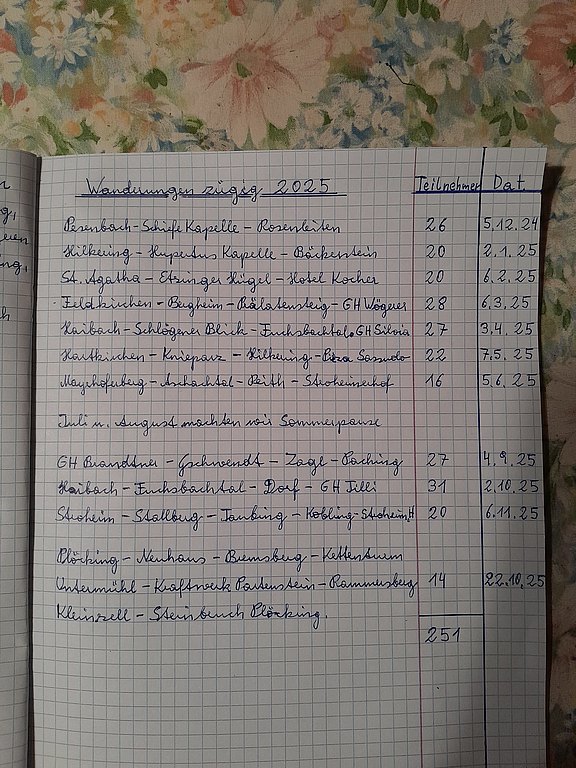 Wanderungen zügig 2025 Teilnehmer Dat
Pesenbach - Schiefe Kapelle - Rosenleiten 26 5.12.24
Hilkering - Hupertus Kapelle - Böckerstein 20 2.1.25
St. Agatha - Etzinger Hügel - Hotel Kocher 20 6.2.25
Feldkirchen - Bergheim - GH Wögerer 28 6.3.25
Haibach - Schlögener Blick - Fuchsbachtal. GH Silvia 27 3.4.25
Hartkirchen - Knieparz - Hilkering - 22 7.5.25
Mayrhoferberg - Aschachtal - Reith - Stroheimerhof 16 5.6.25
Juli u. August machten wir Sommerpause
GH Brandtner - Gschwendt - Zagl - Paching 27 4.9.25
Haibach - Fuchsbachtal - Dorf - GH Tilli 31 2.10.25
Stroheim - Stallberg - Taubing - Kobling - Stroheim, H 20 6.11.25
Plöcking - Neuhaus - Bremsberg - Kettenturm
Untermühl - Kraftwerk Partenstein - Rammersberg 14 22.10.25
Kleinzell - Steinbruch Plöcking.
251